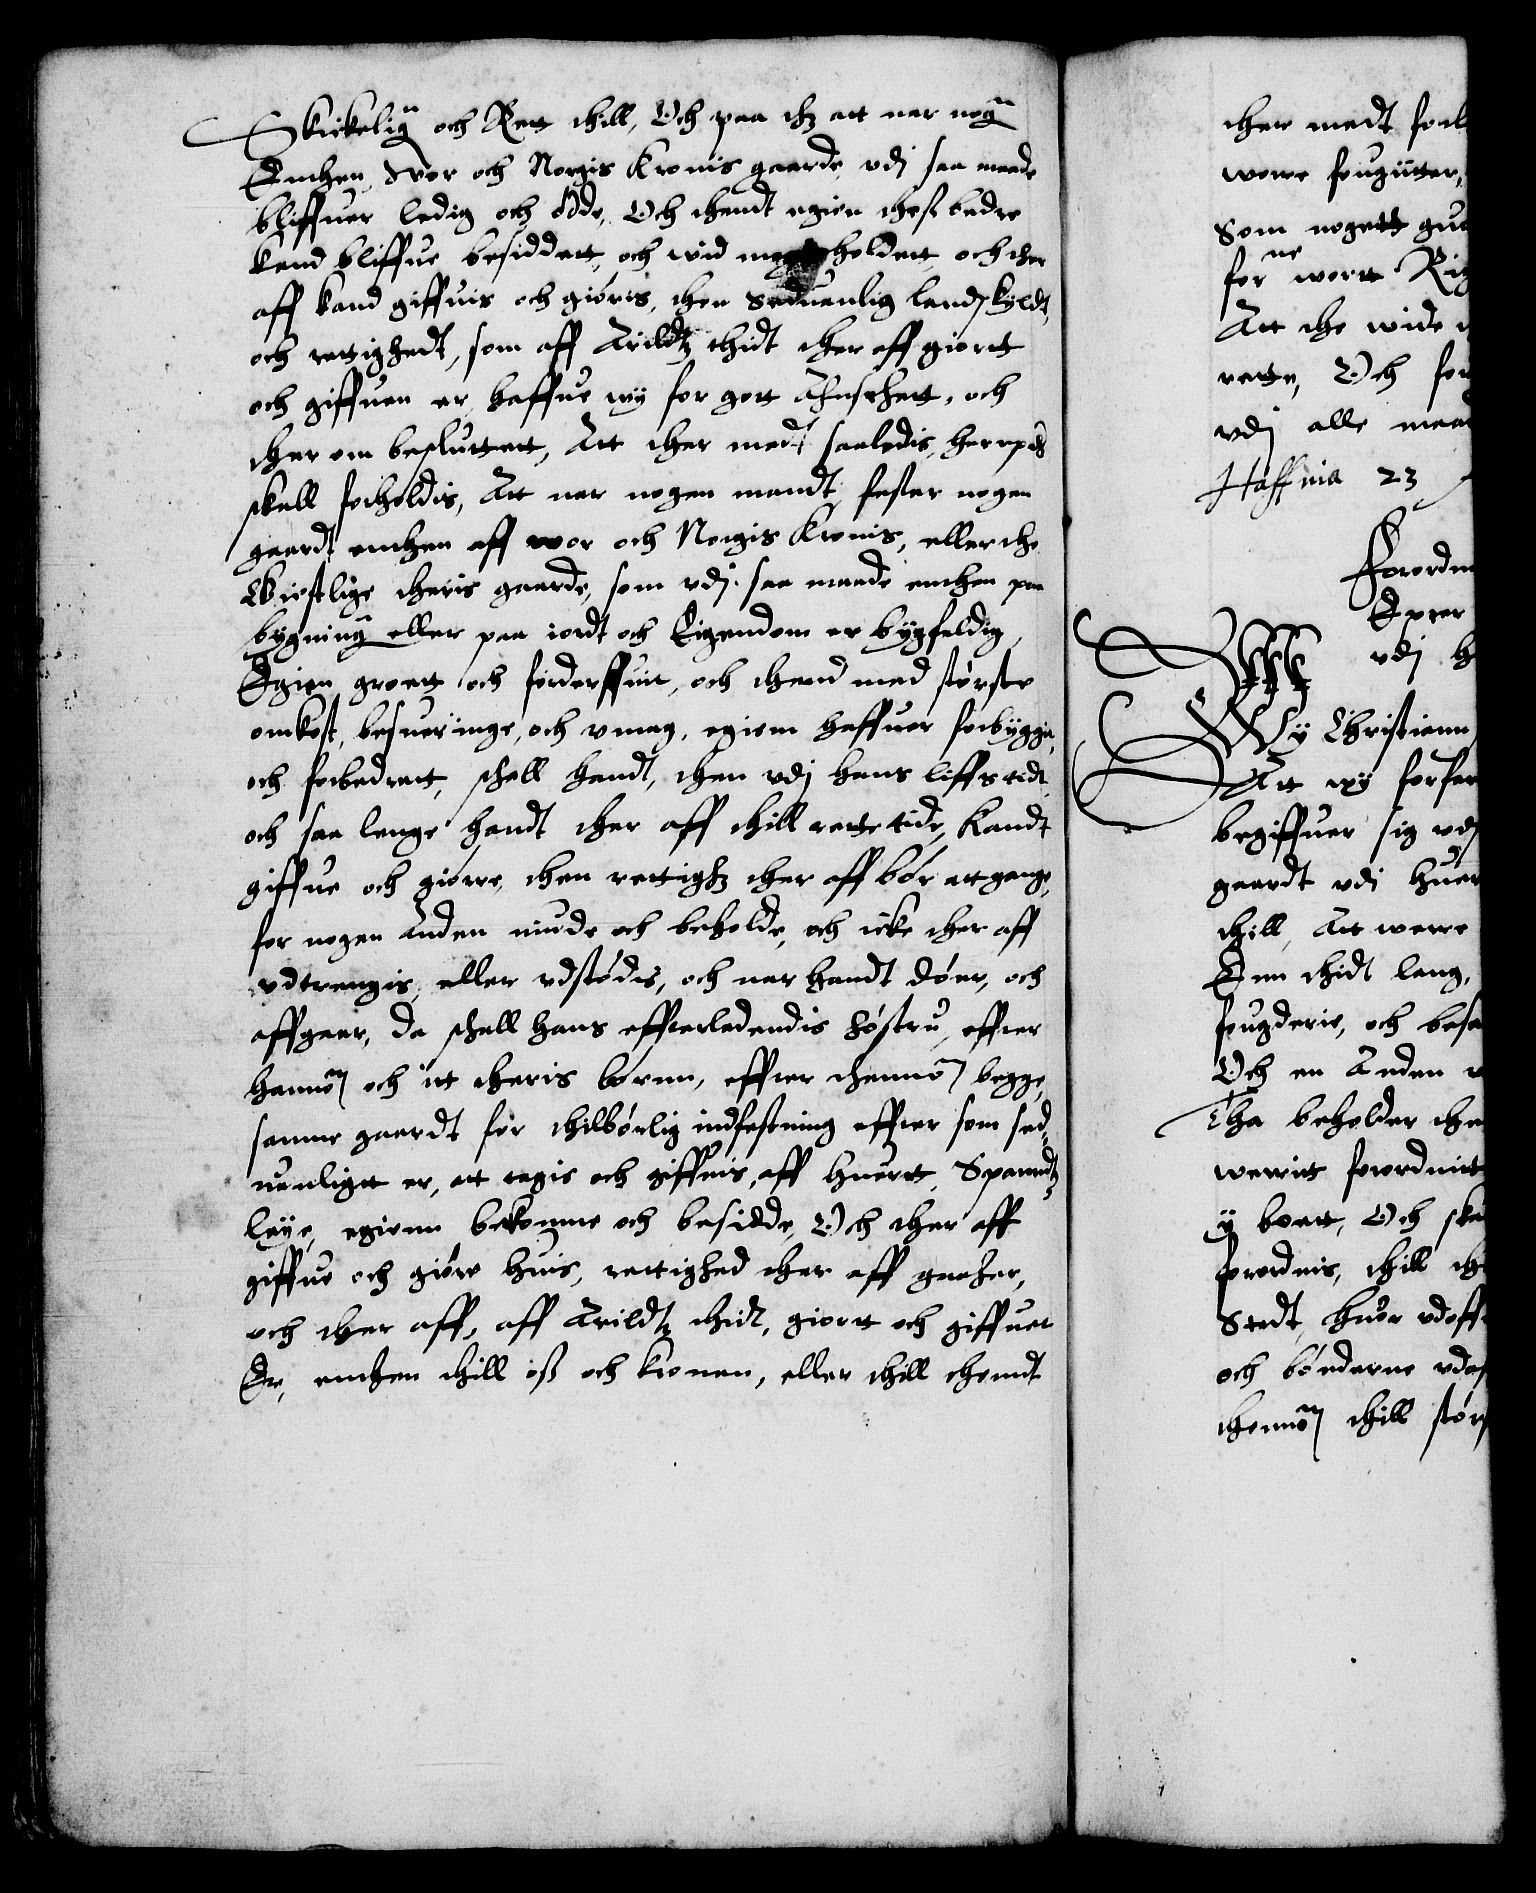 Skickelign och Rett thill, Och paa thz att nar nogn
Enthen Wor och Norgis Kronis gaarde, vdj saa maade
bliffuer ledig och øde, Och thendt egien thess bedre
kand bliffue besiddett, och wid magtt holdett, och ther
aff kand giffuis och giøris, then sedtuanlig landskyldt,
och rettighedt, som aff Arildtz thidt ther aff giortt
och giffuen er, haffue wy for gott Ahnsehett, och
ther om besluttett, Att ther medt saaledis, herepther
skall forholdis, Att nar nogen mandt, fester nogen
gaardt enthen aff wor och Norgis Kronis, eller the
Gieistlige theris gaarde, som vdj saa maade enthen paa
bygning eller paa iordt och Eigendom er bygfeldig,
Egien groett och forderffuit, och thend med største
omkost, besueringe, och vmag, egienn haffuer forbyggitt,
och forbedrett, schall handt, then vdj hans liffs tidt,
och saa lenge handt ther aff thill rette tide, Kandt
giffue och giørre, then rettighz ther aff bør att gange,
for nogen Anden niude och beholde, och icke ther aff
vdtrengis, eller vdstødis, och nar handt døer, och
affgaar, da schall hans effterledendis høstru, effter
hannom och itt theris børnn, effter thennom begge,
samme gaardt for thilbørlig indfestning effter som sed¬
uanligtt er, att tagis och giffuis, aff huertt, Spanndtz
leye, egienn bekomme och besidde, Och ther aff
giffue och giøre huis, rettighed ther aff gaaher,
och ther aff, aff Arildtz thidt, giortt och giffuet
Er, enthen thill oss och kronen, eller thill thenndt
ther medt forh
werre fougitter,
Som nogett gu
forne wortt Rig
Att the wide
rette, Och for
vdj alle maad
Haffnia 23
Forordn
Epter
vdj h
Wy Christiann
Att wy forfar
begiffuer sig vdj
gaardt vdj huer
thill, Att werre
Enn thidt lang,
fougderie, och besø
Och en Anden
Tha beholder the
werritt forordnitt
y boett, Och ska
forordnis, thill th
Stedt, huor vdoff
och bønderne vdaf
thennom thill størs